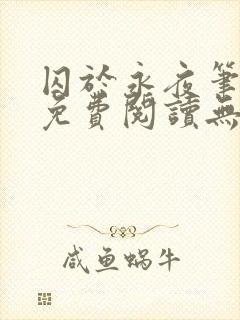 囚於永夜筆
免費閱讀無
咸鱼蜗牛